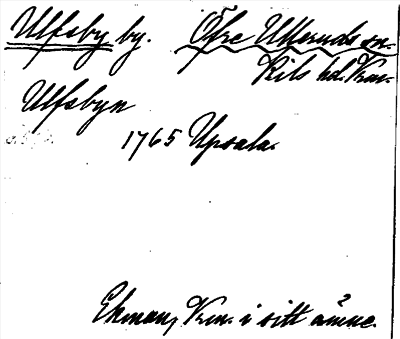 Ulfsby by. Öfre Ulleruds sn.
Kils hd. Vrm.
Ulfsbyn
1765 Upsala.
Ekman, Vrm. i sitt ämne.